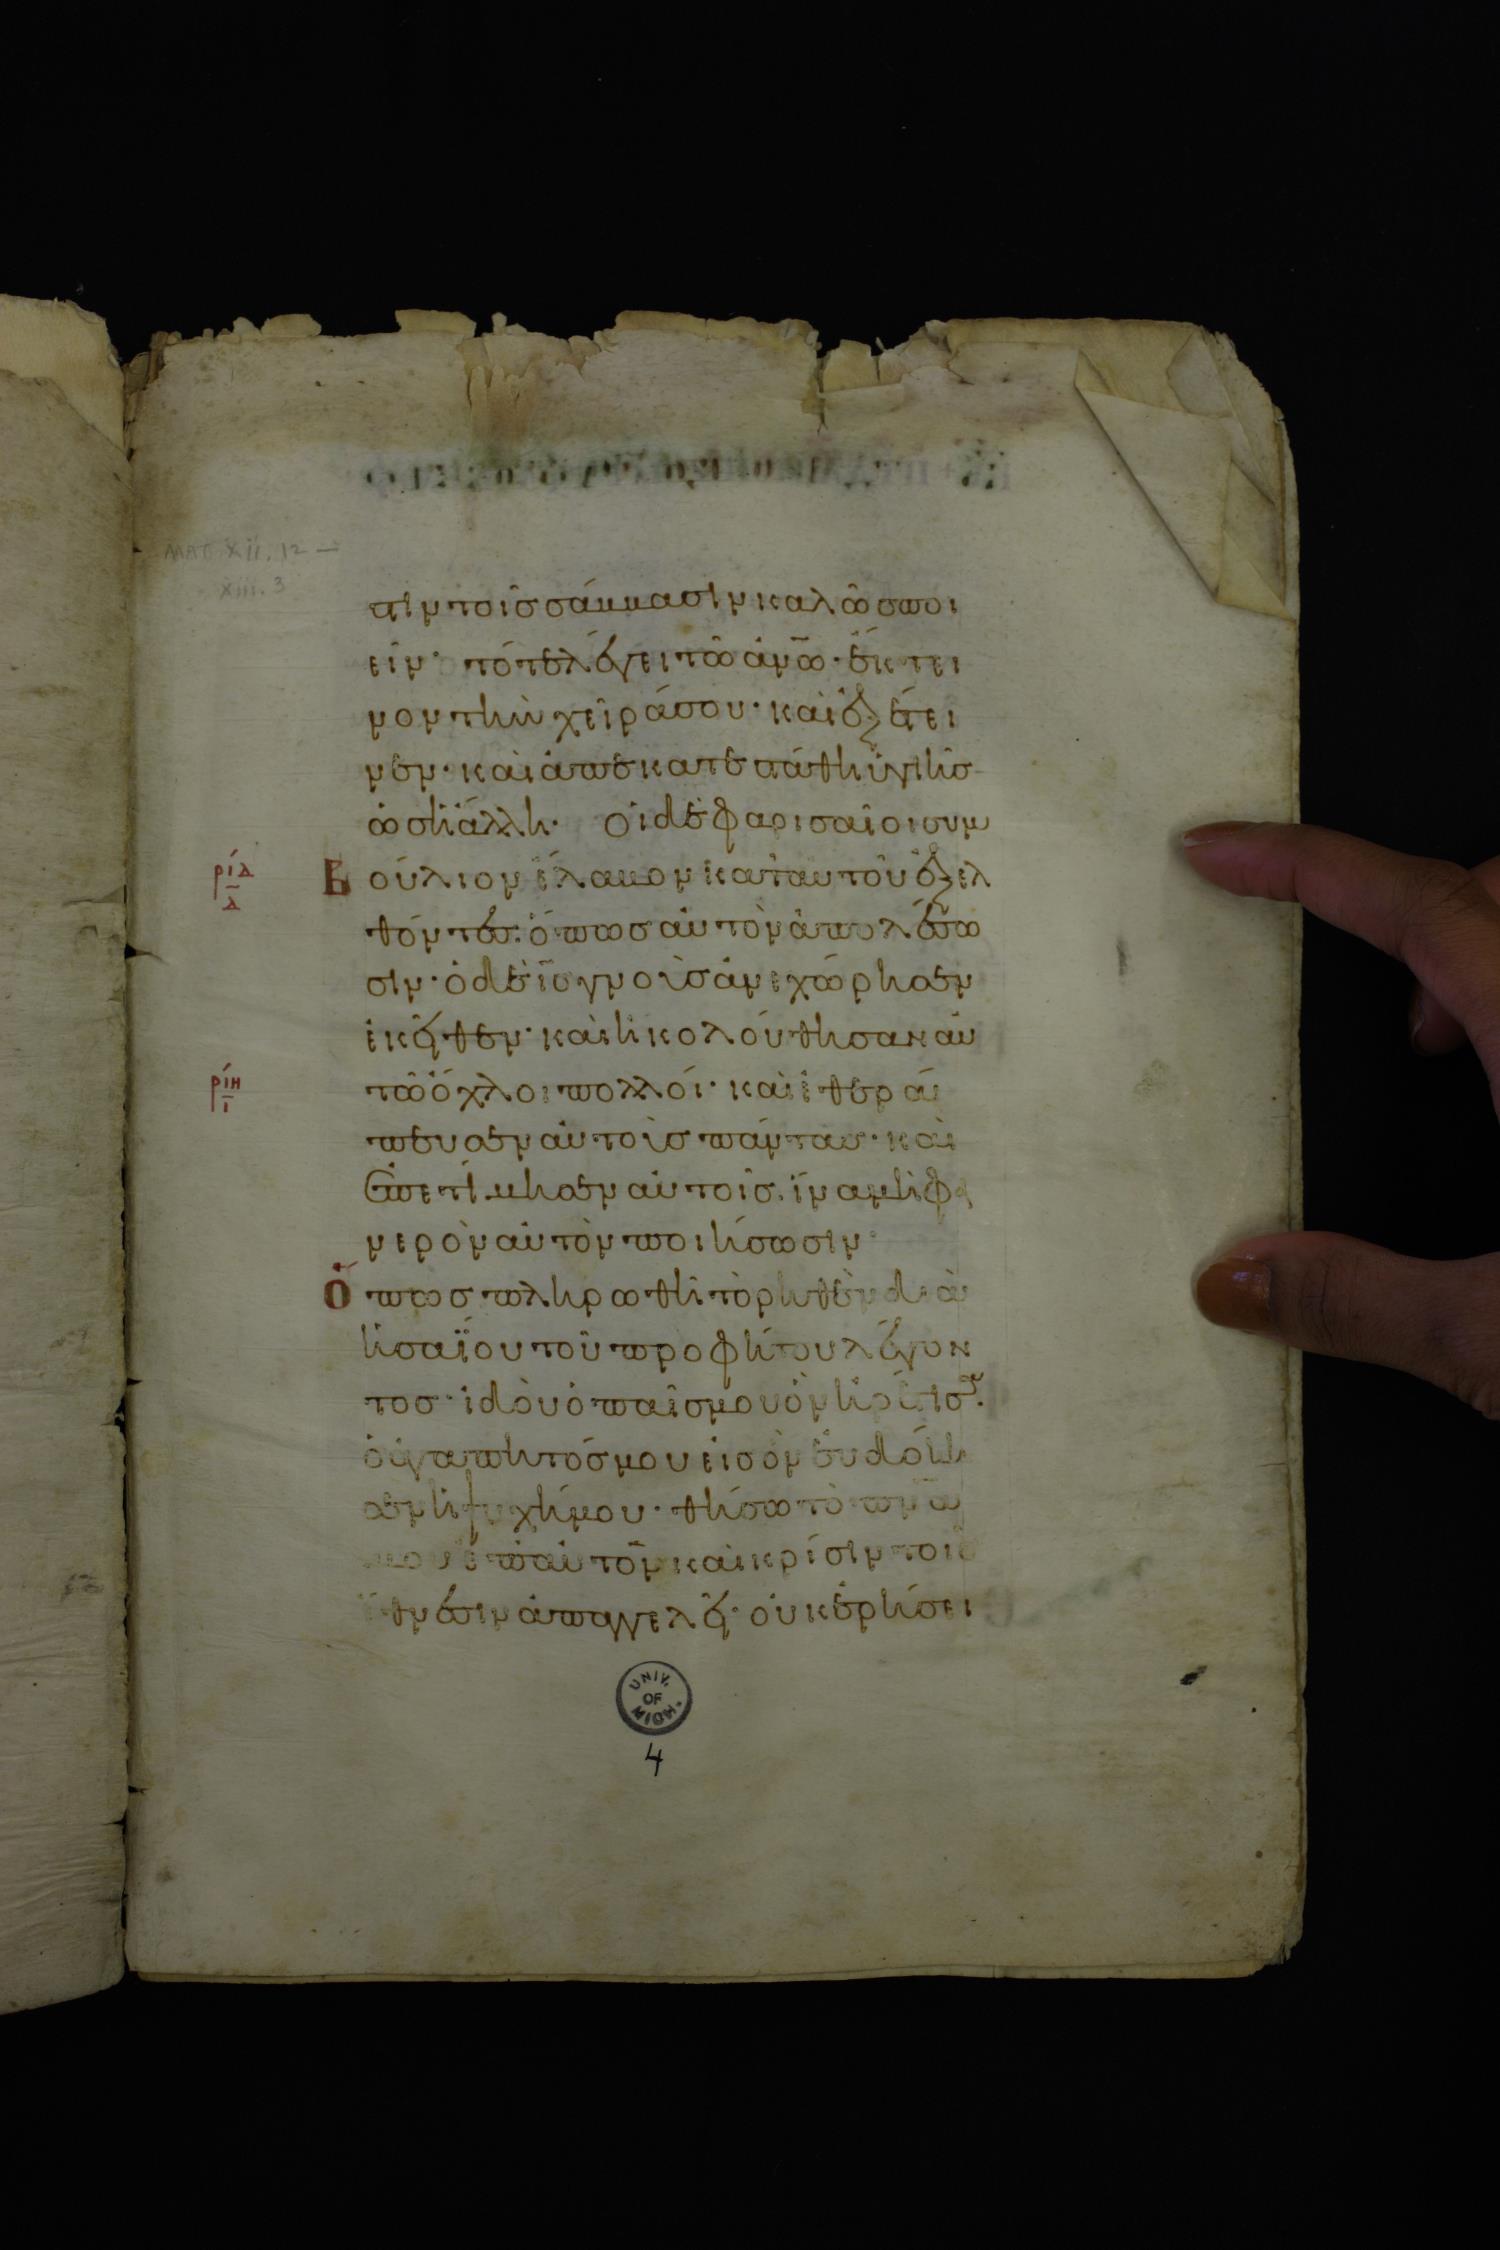 MAT. XII. 12 —
XIII. 3
στιν τοῖς σάββασιν καλῶς ποι
εῖν· τότε λέγει τῶ ἀν̅ω̅· ἔκτει
νον τὴν χεῖρά σου· καὶ ἐξέτει
νεν· καὶ ἀπεκατεστάθη ὑγιὴς
ὡς ἡ ἄλλη· Οἱ δὲ φαρισαῖοι συμ
ρίδ
δ
Β ούλιον ἔλαβον κατ' αυτοῦ ἐξελ
θόντες· ὅπως αὐτὸν ἀπολέσω
σιν· ὁ δὲ ι̅ς̅ γνοὺς ἀνεχώρησεν
ἐκεῖθεν· καὶ ἠκολούθησαν αὐ
ρίη
ι
τῶ ὄχλοι πολλοί· καὶ ἐθερά
πευσεν αὐτοὺς πάντας· καὶ
ἐπετίμησεν αὐτοῖς· ἵνα μὴ φα
νερὸν αὐτὸν ποιήσωσιν·
Ὅ πως πληρωθῆ τὸ ρηθὲν διὰ
ἠσαΐου τοῦ προφήτου λέγον
τος· ἰδοὺ ὁ παῖς μου ὃν ἡρέτισα·
ὁ ἀγαπητός μου εἰς ὃν εὐδόκη
σεν ἡ ψυχή μου· θήσω τὸ π̅ν̅α̅
μου ἐπ' αὐτὸν καὶ κρίσιν τοῖς
ἔθνεσιν ἀπαγγελεῖ· οὐκ ἐρίσει
UNIV. OF MICH.
4